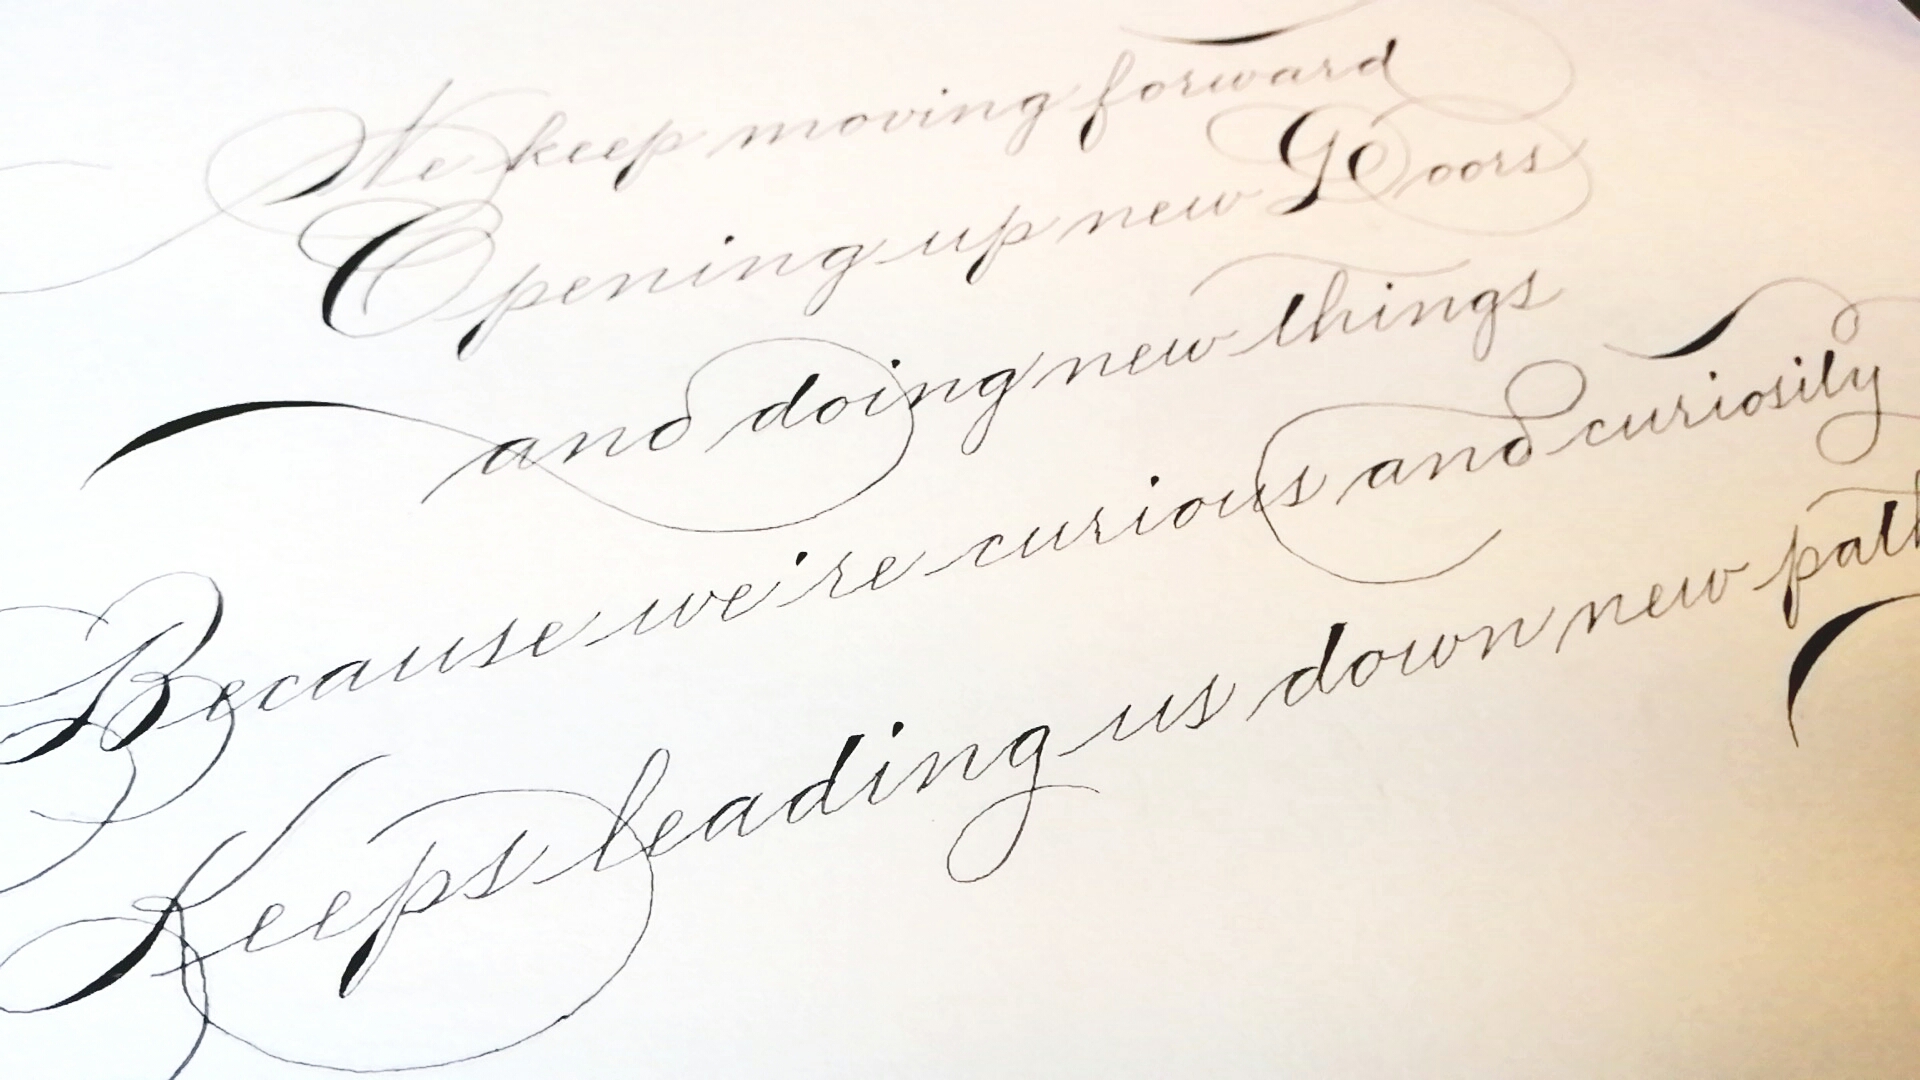 We keep moving forward
Opening up new Doors
and doing new things
Because we're curious and curiosity
Keeps leading us down new path